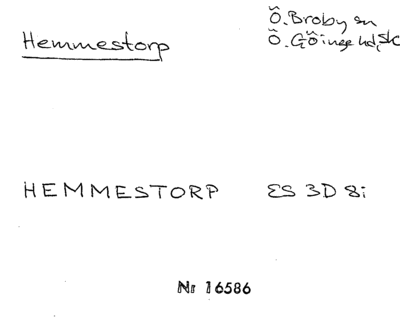 Hemmestorp
Ö. Broby sn
Ö. Göinge hd, Sk
HEMMESTORP ES 3D 8i
Nr 16586